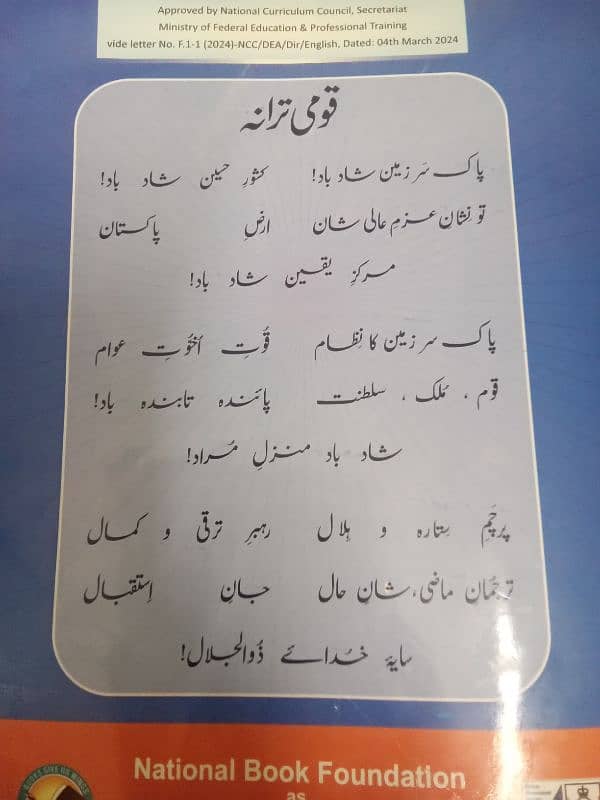 Approved by National Curriculum Council, Secretariat
Ministry of Federal Education & Professional Training
vide letter No. F.1-1 (2024)-NCC/DEA/Dir/English, Dated: 04th March 2024
قومی ترانہ
پاک سَر زمین شاد باد! کشورِ حسین شاد باد!
تو نِشانِ عزمِ عالی شان ارضِ پاکستان
مرکزِ یقین شاد باد!
پاک سر زمین کا نِظام قُوتِ اُخُوتِ عوام
قوم ، مُلک ، سلطنت پائندہ تابندہ باد!
شاد باد منزلِ مُراد!
پرچَمِ سِتارہ و ہِلال رہبرِ ترقی و کمال
ترجُمانِ ماضی، شانِ حال جانِ اِستقبال
سایۂ خُدائے ذُوالجلال!
National Book Foundation
as